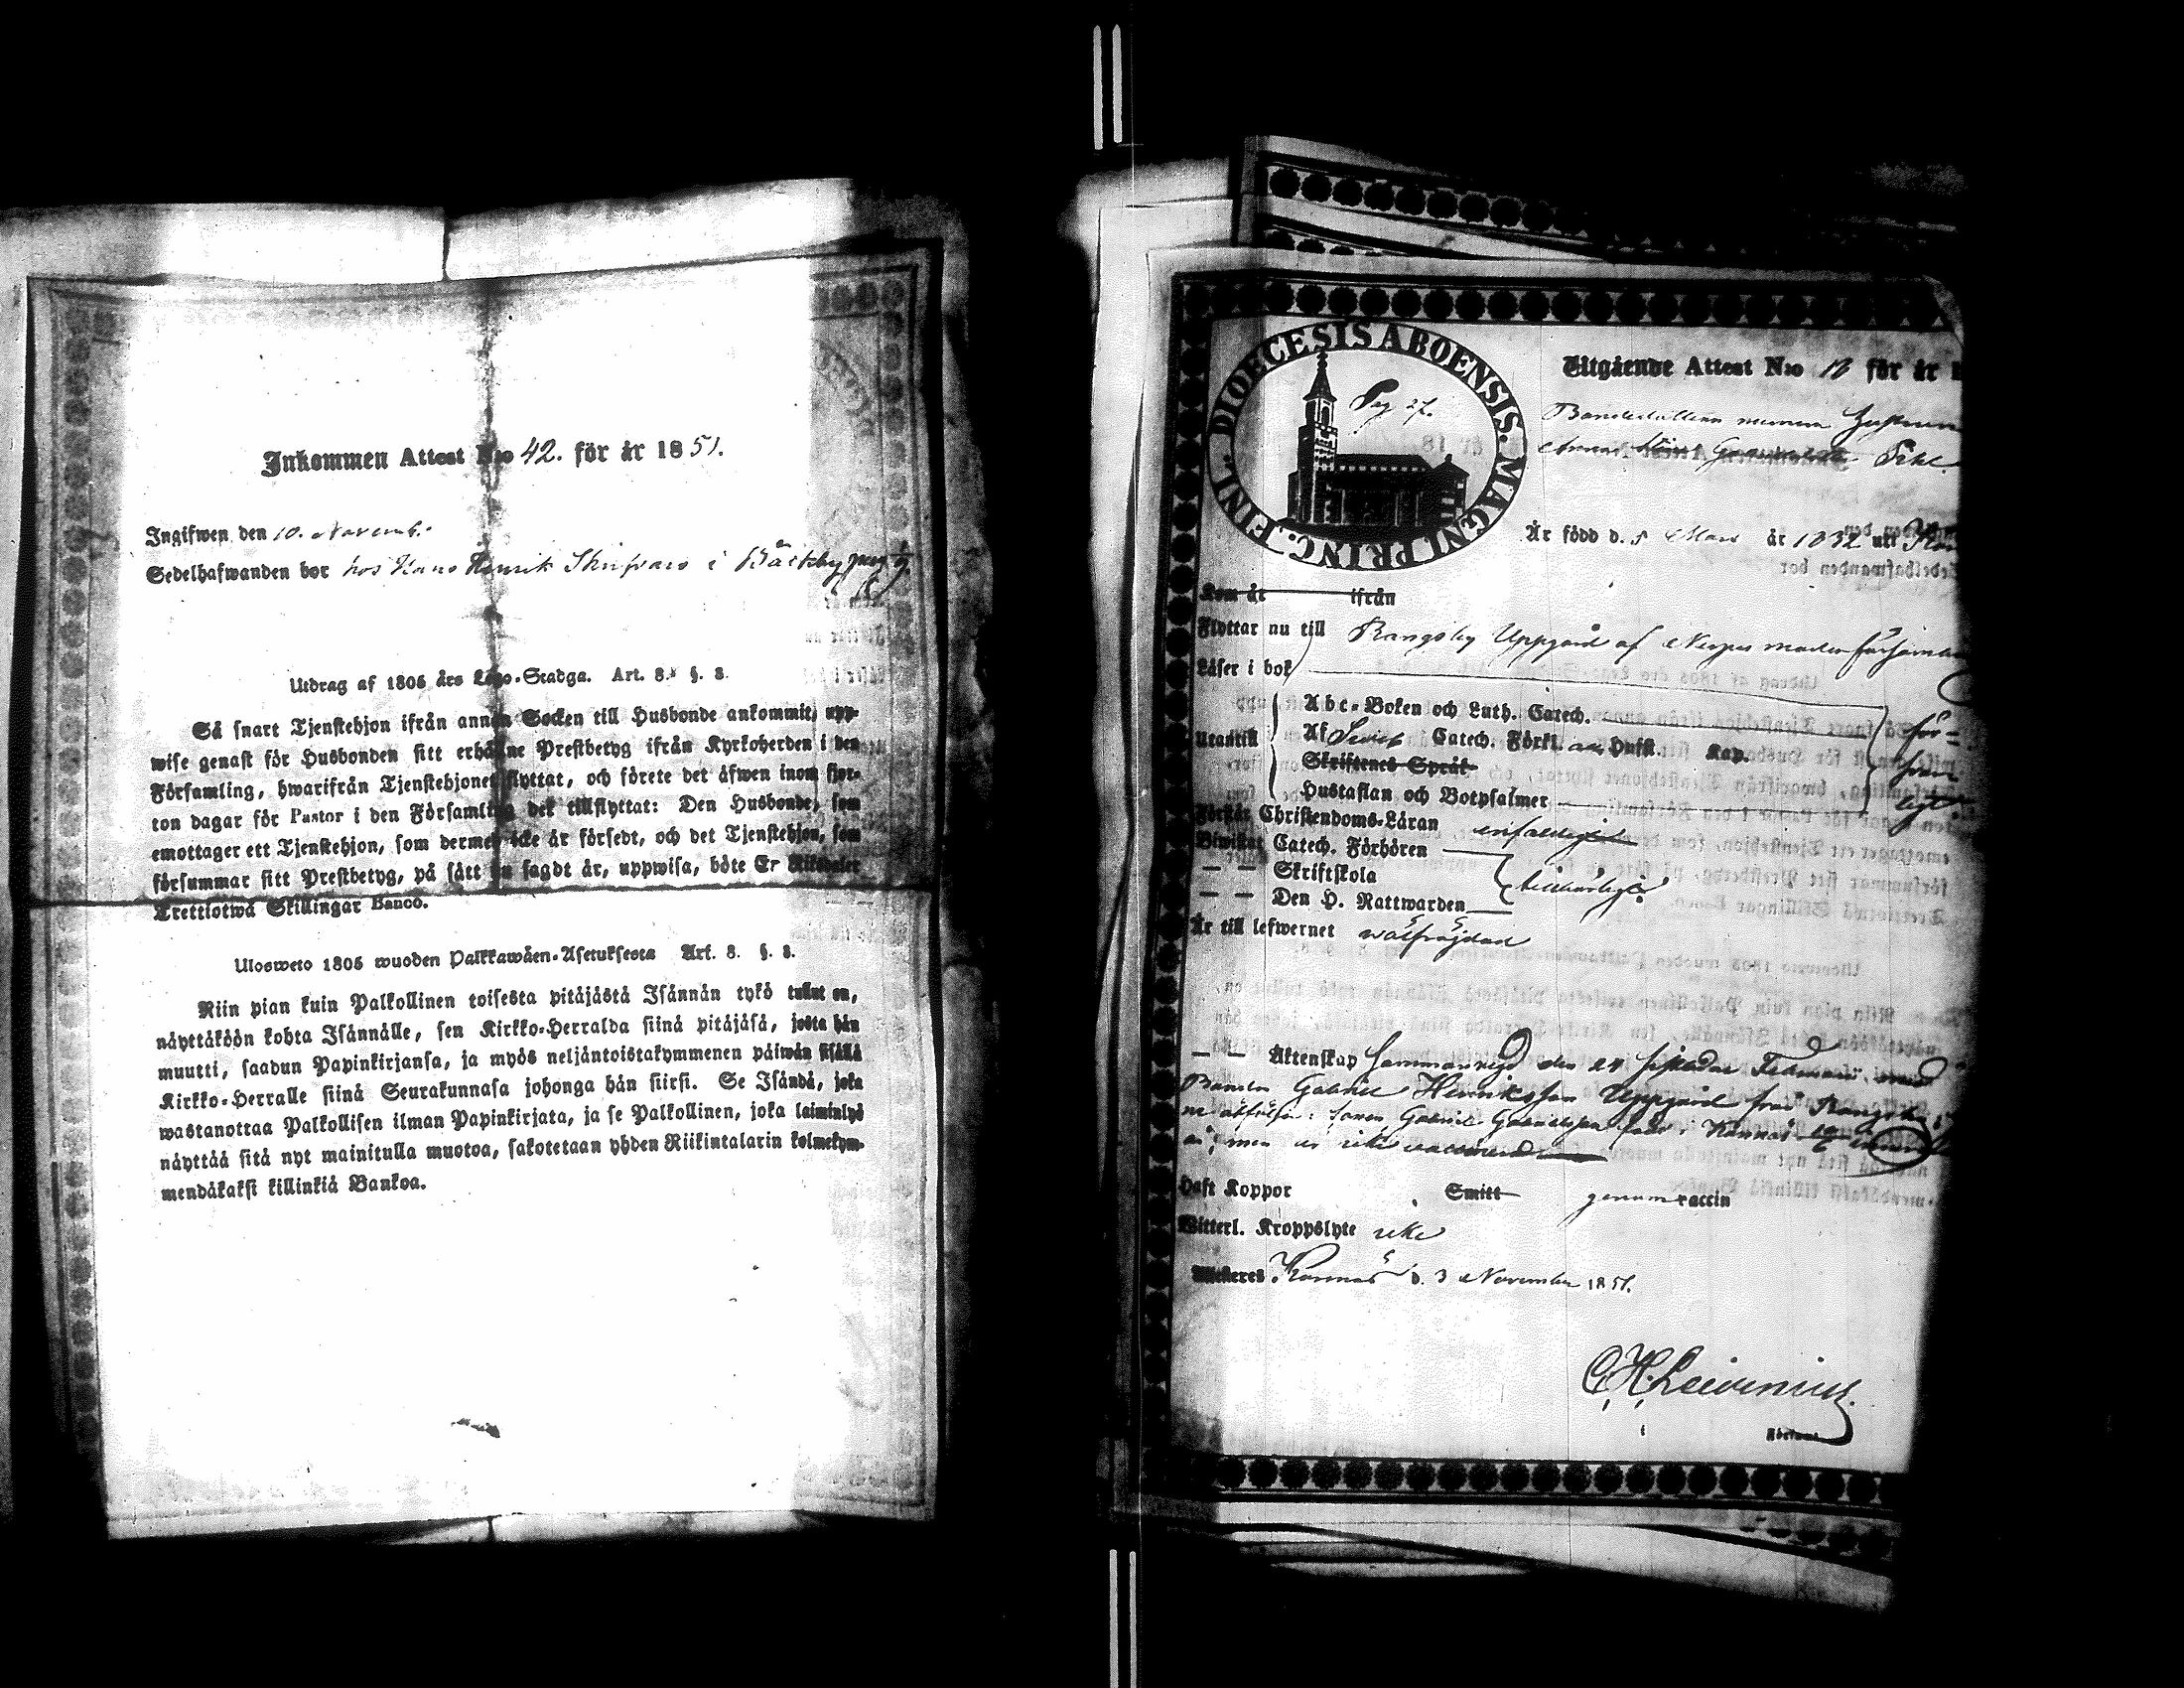 Inkommen Attest N:o 42. för år 1851.
Ingifwen den 10. Novemb.
Sedelhafwanden bor hos Hans Henrik i Bäckby pag
Utdrag af 1805 års Lego-Stadga. Art. 8. §. 8.
Så snart Tjenstehjon ifrån annan Socken till Husbonde ankommit, upp-
wise genast för Husbonden sitt erhållne Prestbetyg ifrån Kyrkoherden i den
Församling, hwarifrån Tjenstehjonet flyttat, och förete det äfwen inom fjor-
ton dagar för Pastor i den Församling det tillflyttat: Den Husbonde, som
emottager ett Tjenstehjon, som dermed icke är försedt, och det Tjenstehjon, som
försummar sitt Prestbetyg, på sätt nu sagdt är, uppwisa, böte En Riksdaler
Trettiotwå Skillingar Banco.
Ulosweto 1805 wuoden Palkkawäen-Asetuksesta Art. 8. §. 8.
Niin pian kuin Palkollinen toisesta pitäjästä Isännän tykö tullut on,
näyttäköön kohta Isännälle, sen Kirkko-Herralda siinä pitäjäsä, josta hän
muutti, saadun Papinkirjansa, ja myös neljäntoistakymmenen päiwän sisällä
Kirkko-Herralle siinä Seurakunnasa johonga hän siirsi. Se Isändä, joka
wastanottaa Palkollisen ilman Papinkirjata, ja se Palkollinen, joka laiminlyö
näyttää sitä nyt mainitulla muotoa, sakotetaan yhden Riikintalarin kolmekym-
mendäkaksi killinkiä Bankoa.
DIOECESIS ABOENSIS. MAGNI PRINC. FINL.
Pag 27.
Utgående Attest N:o 13 för år
Är född d. 5 Mars år 1832 uti
Kom år ifrån
Flyttar nu till Rangsby Uppgård af Nerpes moder församl
Läser i bok
Utantill
Abc-Boken och Luth. Catech.
Af Svebil. Catech. Förkl. Hufst. Kap.
Skriftenes Språk
Hustaflan och Botpsalmer
för-
svar-
ligt
Förstår Christendoms-Läran enfaldigt
Biwistat Catech. Förhören
— — Skriftskola
— — Den H. Nattwarden
behörigt
Är till lefwernet wälfrejdad
— — Äktenskap Sammanvigd den 24 sistledne Februarii med
Bonden Gabriel Henriksson Uppgård från Rangsby
me åtföljer: sonen Gabriel Gabrielsson född i Korsnäs
men är icke vaccinerad
Haft Koppor Smitt genom vaccin
Witterl. Kroppslyte icke
Attesteres Korsnäs d. 3 November 1851.
C. H.